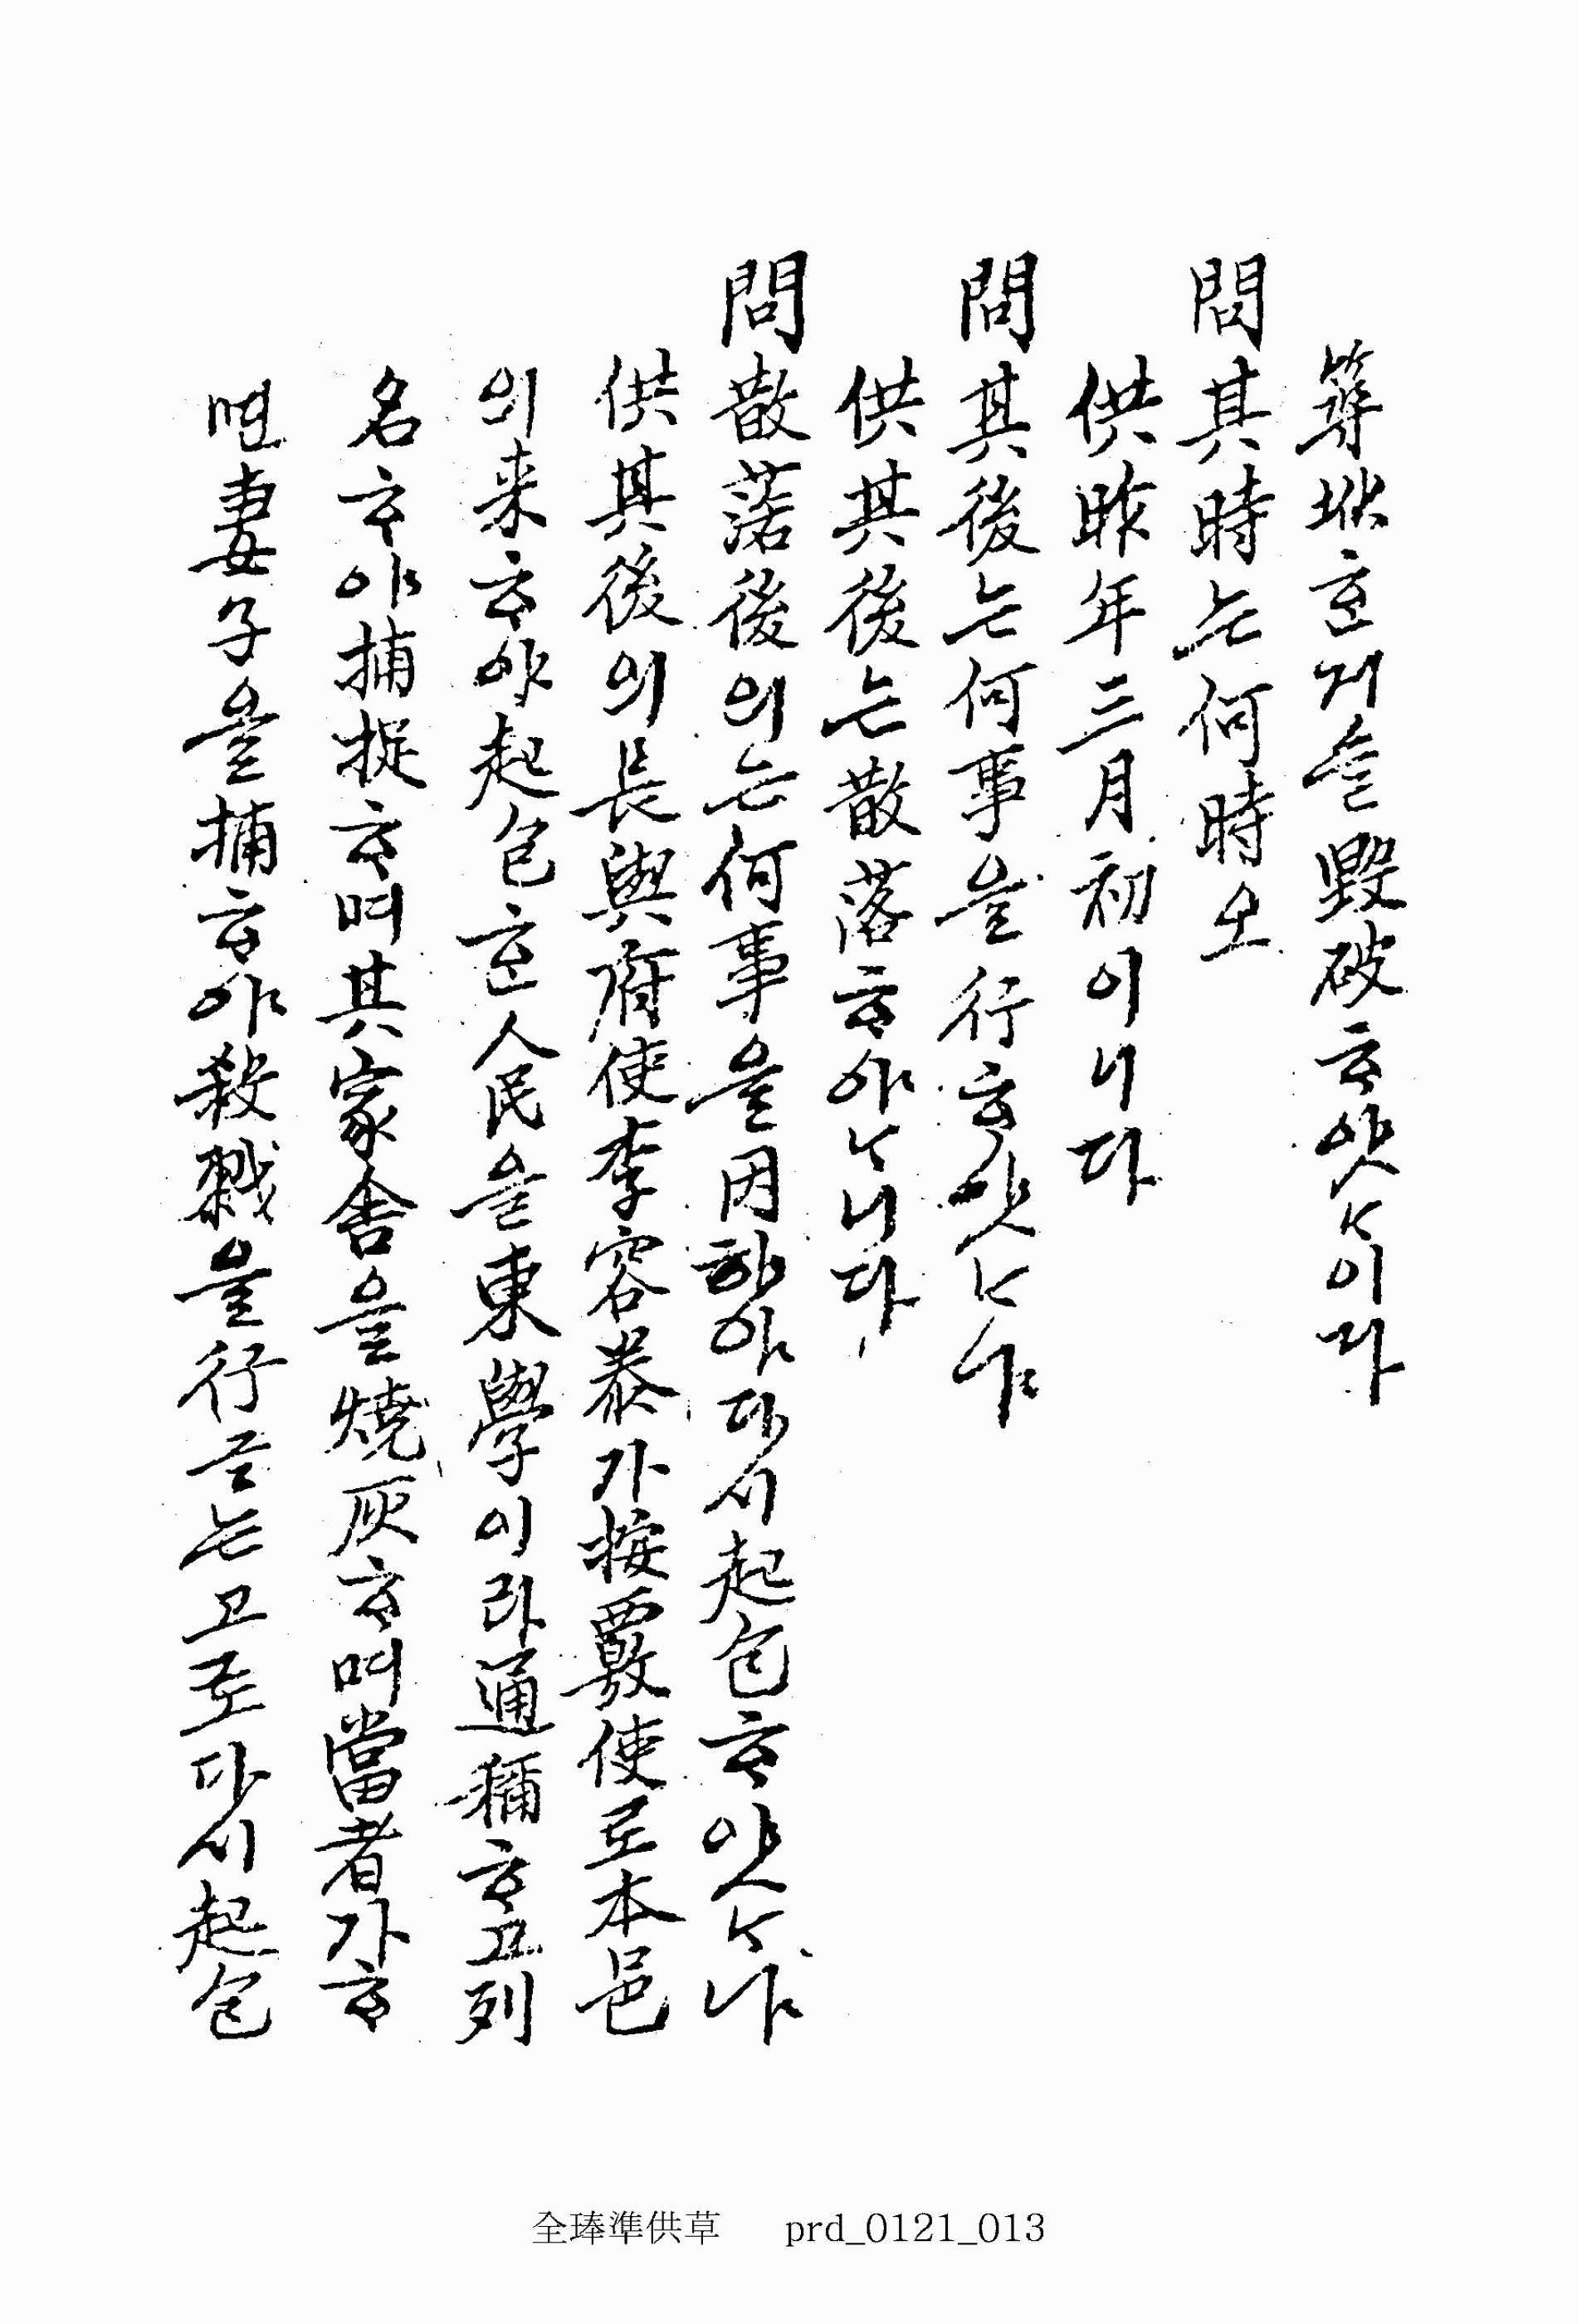 築㳍ᄒᆞᆫ거슬毁破ᄒᆞ얏ᄂᆞ이다
問其時ᄂᆞᆫ何時오
供昨年三月初이니다
問其後ᄂᆞᆫ何事을行ᄒᆞ얏ᄂᆞ냐
供其後ᄂᆞᆫ散落ᄒᆞ야ᄂᆞ니다
問散落後의ᄂᆞᆫ何事을因하야다시起包ᄒᆞ얏ᄂᆞ냐
供其後의長興府使李容泰가按覈使로本邑
의来ᄒᆞ야起包ᄒᆞᆫ人民을東學이라通稱ᄒᆞ고列
名ᄒᆞ야捕捉ᄒᆞ며其家舍을燒灰ᄒᆞ며當者가ᄒᆞ
면妻子을捕ᄒᆞ야殺戮을行ᄒᆞᄂᆞᆫ고로다시起包
全琫準供草 prd_0121_013